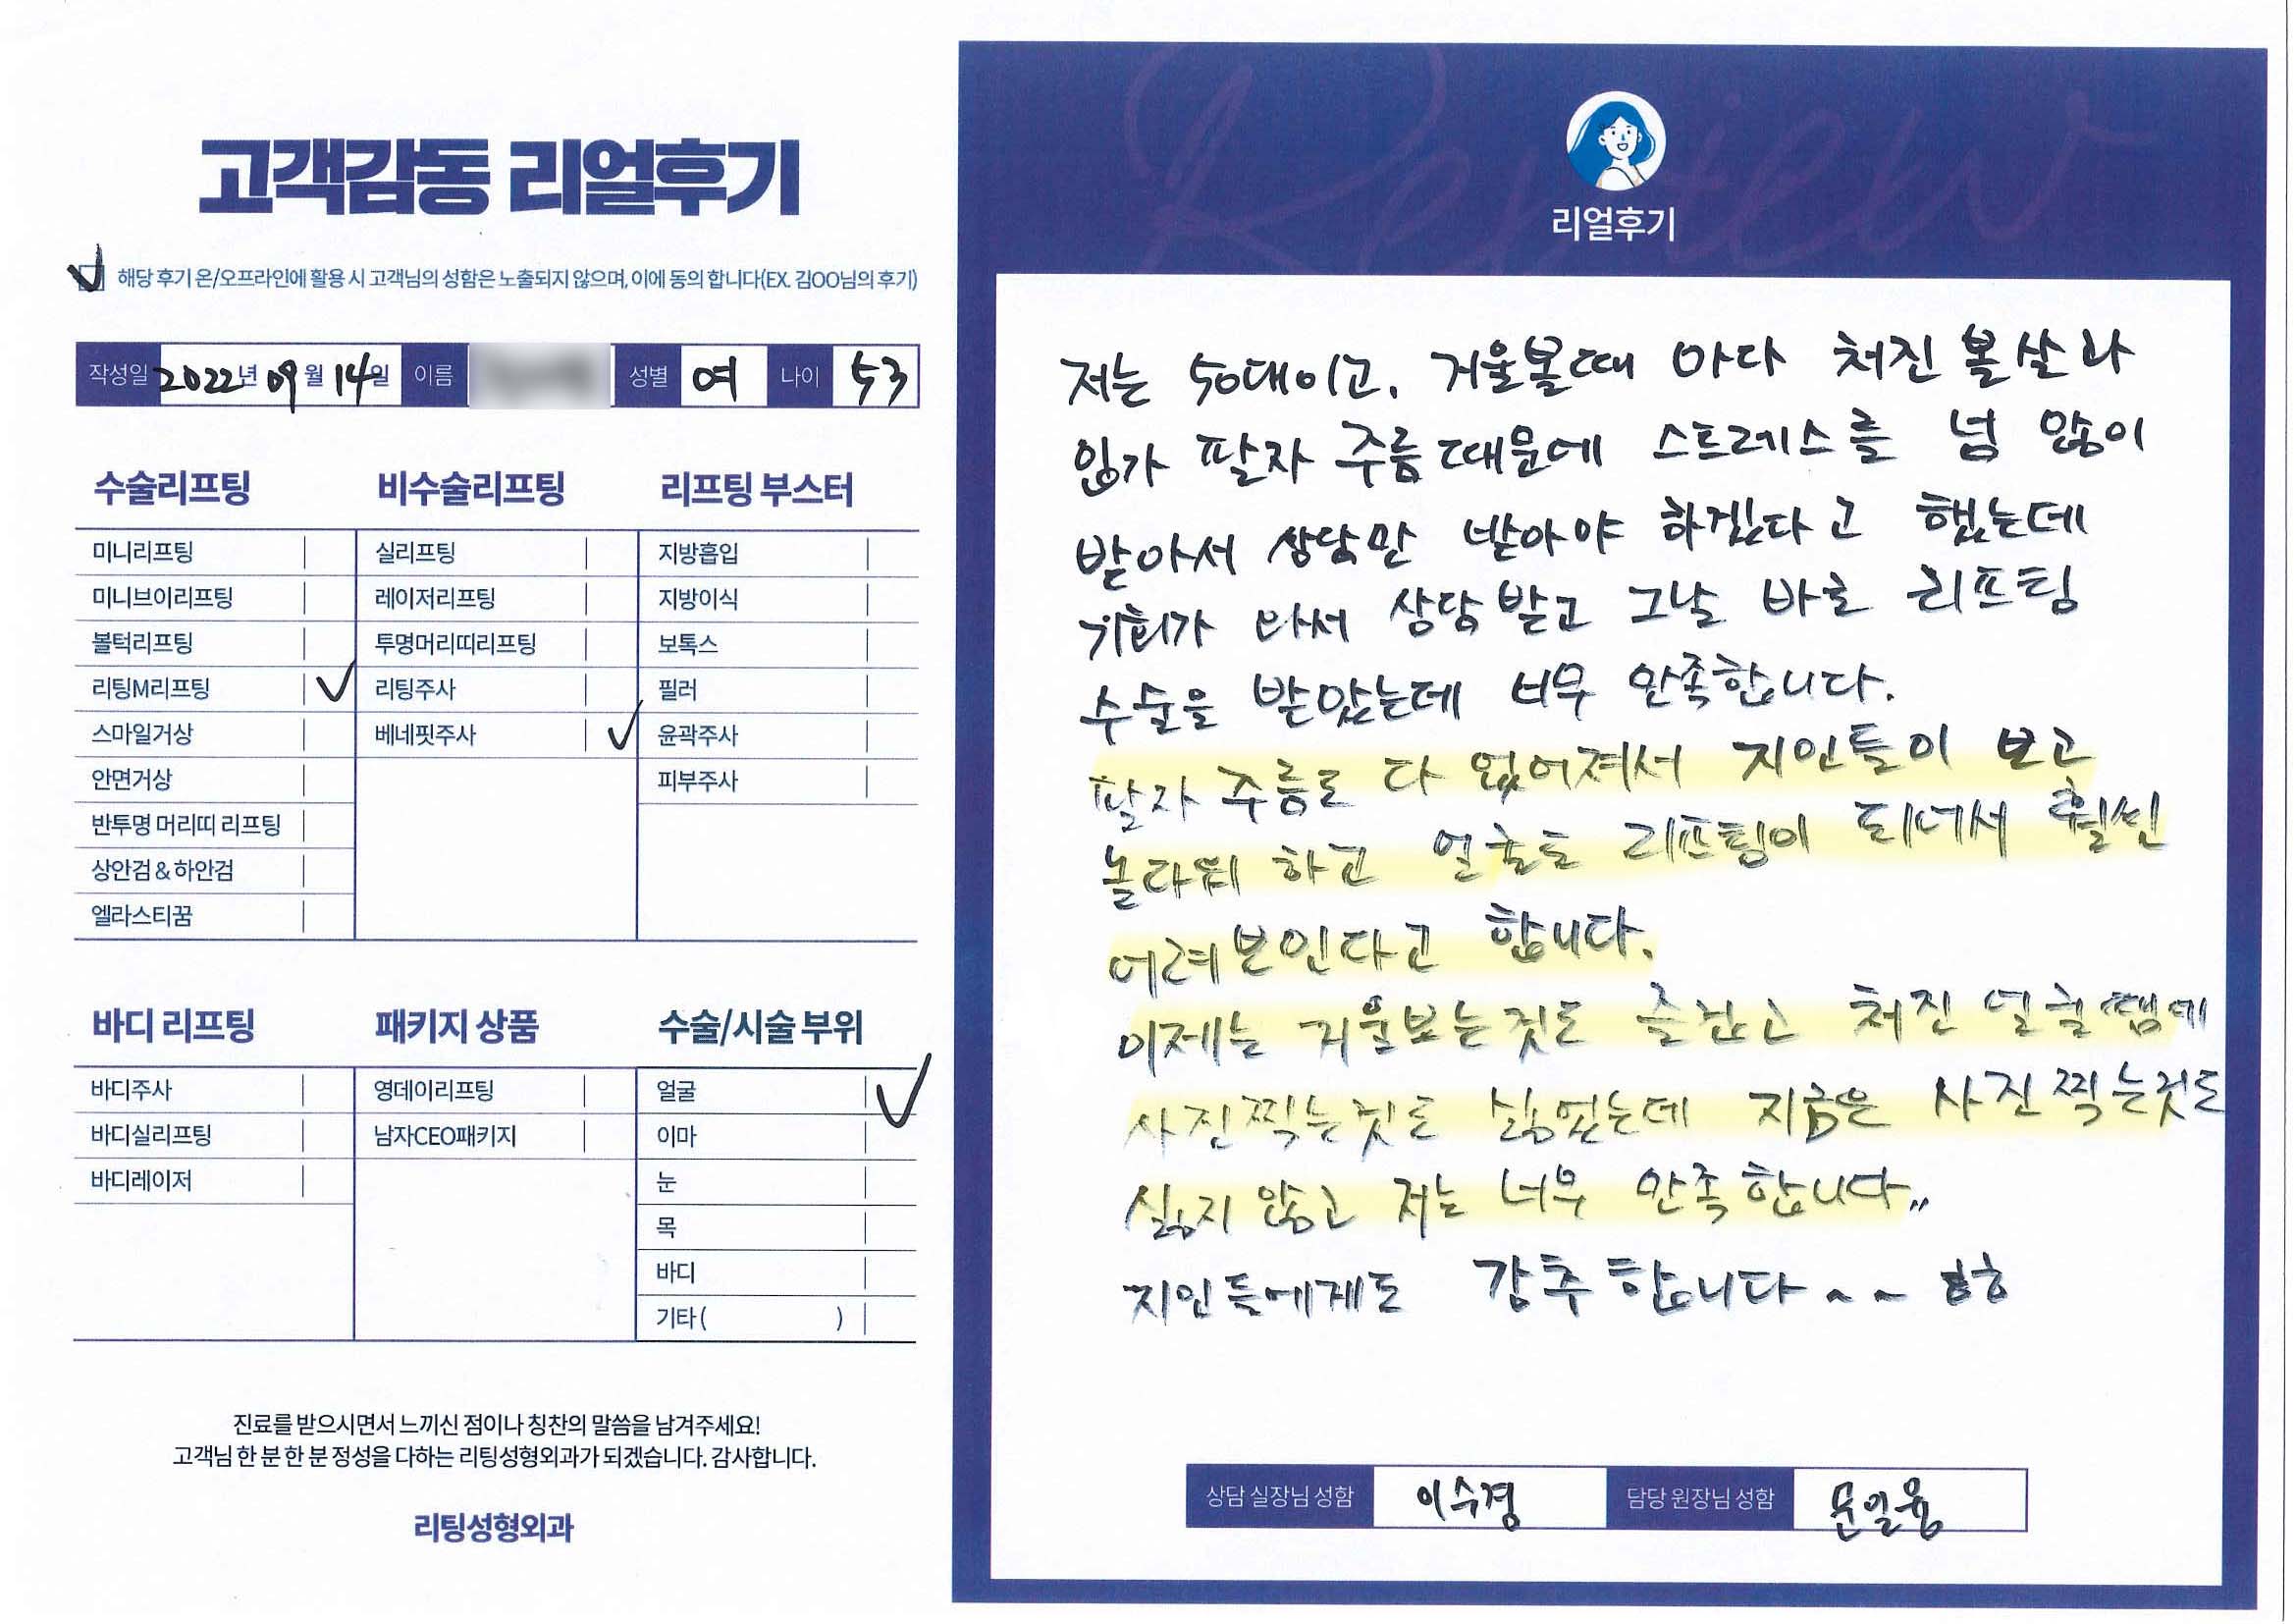 고객감동 리얼후기
해당 후기 온/오프라인에 활용 시 고객님의 성함은 노출되지 않으며, 이에 동의 합니다(EX. 김OO님의 후기)
작성일 2022년 09월 14일 이름 성별 여 나이 53
수술리프팅
미니리프팅
미니브이리프팅
볼턱리프팅
리팅M리프팅 ✓
스마일거상
안면거상
반투명 머리띠 리프팅
상안검 & 하안검
엘라스티꿈
비수술리프팅
실리프팅
레이저리프팅
투명머리띠리프팅
리팅주사
베네핏주사 ✓
리프팅 부스터
지방흡입
지방이식
보톡스
필러
윤곽주사
피부주사
바디 리프팅
바디주사
바디실리프팅
바디레이저
패키지 상품
영데이리프팅
남자CEO패키지
수술/시술 부위
얼굴 ✓
이마
눈
목
바디
기타 ( )
진료를 받으시면서 느끼신 점이나 칭찬의 말씀을 남겨주세요!
고객님 한 분 한 분 정성을 다하는 리팅성형외과가 되겠습니다. 감사합니다.
리팅성형외과
Review
리얼후기
저는 50대이고, 거울볼때 마다 처진 볼살과
입가 팔자 주름때문에 스트레스를 넘 많이
받아서 상담만 받아야 하겠다고 했는데
기회가 와서 상담받고 그날 바로 리프팅
수술을 받았는데 너무 만족합니다.
팔자 주름도 다 없어져서 지인들이 보고
놀라워 하고 얼굴도 리프팅이 되어서 훨씬
어려보인다고 합니다.
이제는 거울보는것도 즐겁고 처진 얼굴땜에
사진찍는것도 싫었는데 지금은 사진찍는것도
싫지 않고 저는 너무 만족합니다..
지인들에게도 강추합니다~~ ㅎㅎ
상담 실장님 성함 이수경 담당 원장님 성함 문일웅